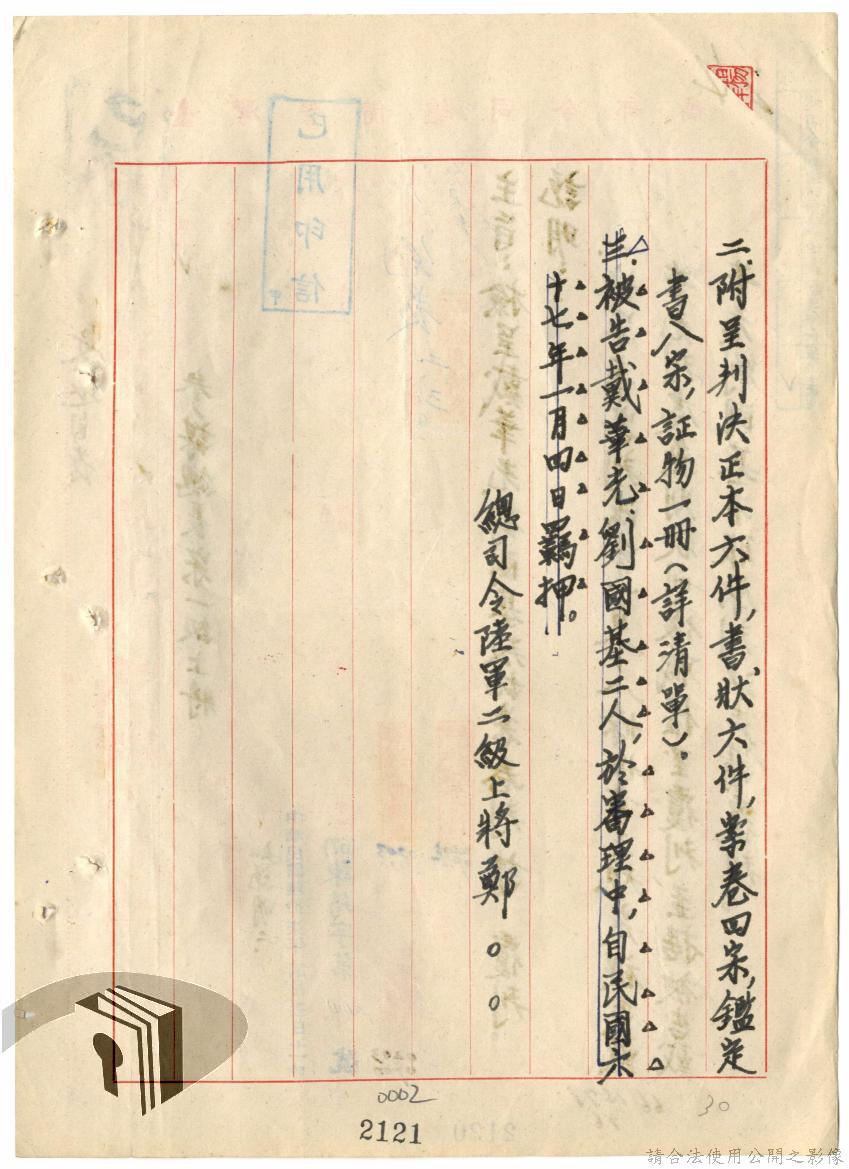 二、附呈判決正本六件，書狀六件，案卷四宗，鑑定
書八宗，証物一冊（詳清單）。
三、被告戴華光、劉國基二人，於審理中，自民國六
十七年一月四日羈押。
總司令陸軍二級上將鄭○○
已用印信
0002
2121
30
請合法使用公開之影像